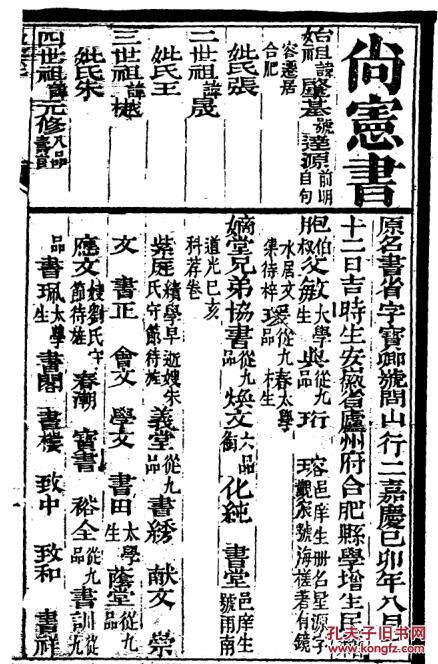 尚憲書
原名書省字寶卿號問山行二嘉慶己卯年八月
十二日吉時生安徽省廬州府合肥縣學增生民籍
始祖諱肇基號達源前明自句
容遷居
合肥
妣氏張
二世祖諱晟
妣氏王
三世祖諱樾
妣氏朱
四世祖諱元修八品壽員
胞伯叔父敏太學生 與從九品 珩 瑢邑庠生册名星源子
瑚觀宸號海槎著有鏡
水居文集待梓 瑗從九品 春太學生
嫡堂兄弟協書從九品 煥文六品銜 化純 書堂邑庠生號雨南
道光己亥
科荐卷
紫庭績學早逝嫂朱氏守節待旌 義堂從九品 書綉 献文 崇
文 書正 會文 學文 書田太學生 蔭堂從九品
應文嫂劉氏守節待旌 春潮 寶書 裕全從九品 書訓從九
品 書珮太學生 書閣 書樓 致中 致和 書祥
孔夫子旧书网
www.kongfz.com